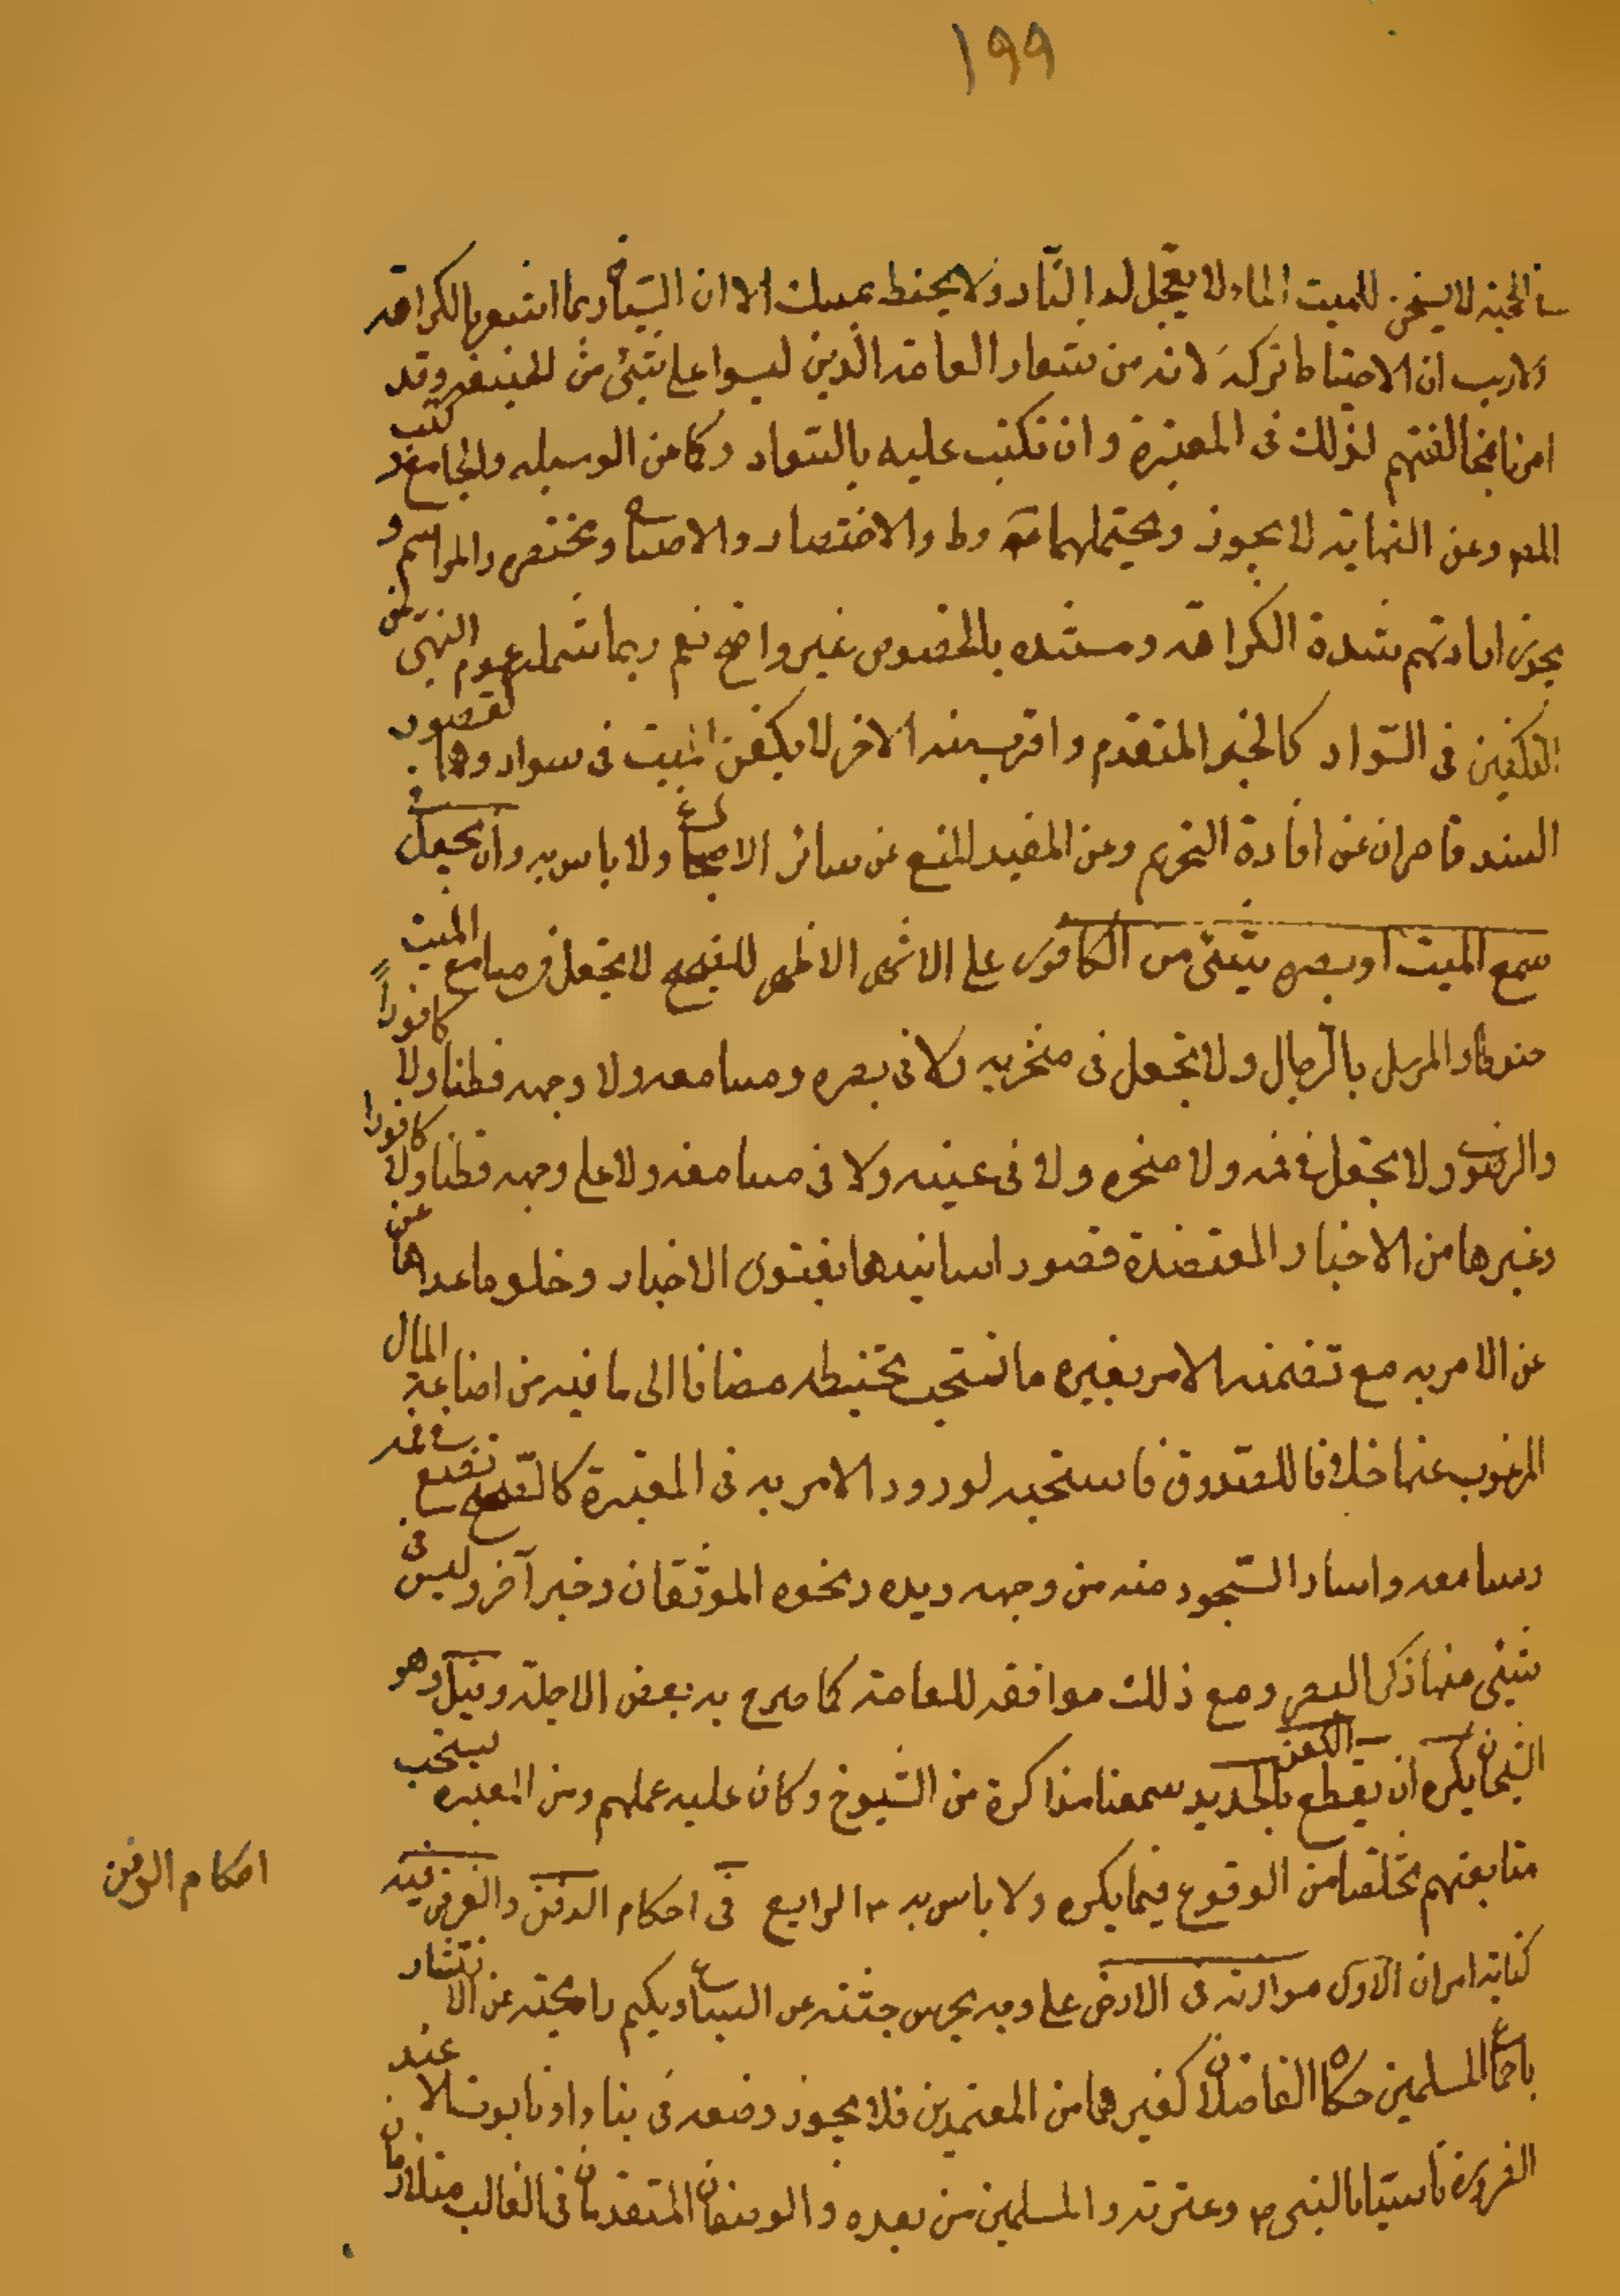 ١٩٩
لا يسخن للميت الماء لا يعجل له النار ولا يحنط بمسك الا ان السياق ربما اشعر بالكراهة
ولا ريب ان الاحتياط تركه لانه من شعار العامة الذين ليسوا على شئ من الحنيفية وقد
امرنا بمخالفتهم لذلك فى المعتبرة وان تكتب عليه بالسواد وكما عن الوسيلة والجامع و كتب
وعن النهاية لا يجوز ويحتملهما وط والاقتصار والاصباح ومختصره والمراسم و
ارادتهم شدة الكراهة ومستنده بالخصوص غير واضح نعم ربما شمله عموم النهى عن
التكفين فى السواد كالخبر المتقدم واقرب منه الاخر لا يكفن الميت فى سواد وهما لقصور
السند قاصران عن افادة التحريم وعن المفيد المنع عن سائر الاصباغ ولا باس به وان يجعل فى
سمع الميت او بصره شئ من الكافور على الاشهر الاظهر للصحيح لا يجعل فى مسامع الميت
حنوطا والمرسل بالرجال ولا تجعل فى منخريه ولا فى بصره ومسامعه ولا وجهه قطنا ولا كافوراً
والرضوى ولا تجعل فى فمه ولا منخره ولا فى عينيه ولا فى مسامعه ولا على وجهه قطنا ولا كافورا
وغيرها من الاخبار المعتضدة قصور اسانيدها بفتوى الاخيار وخلو ما عداها عن
عن الامر به مع تضمنه الامر بغيره ما تستحب تحنيطه مضافا الى ما فيه من اضاعة المال
المرغوب عنها خلافا للصدوق فاستحبه لورود الامر به فى المعتبرة كالصحيح تضع فى فمه
ومسامعه واثار السجود منه من وجهه ويديه ونحوه الموثقان وخبر آخر وليس فى
شئ منها ذكر البصر ومع ذلك موافقه للعامة كما صرح به بعض الاجلة وقيل وهو
الشيخان يكره ان يقطع الكفن بالحديد سمعنا مذاكرة من الشيوخ وكان عليه عملهم وعن المعتبر يستحب
متابعتهم تخلصا من الوقوع فيما يكره ولا باس به ٣ الرابع فى احكام الدفن والغرض فيه
احكام الدفن
كفاية امران الاول مواراته فى الارض على وجه يحرس جثته عن السباع ويكتم رايحته عن الانتشار
باجماع المسلمين حكاه الفاضلان كغيرهما من المعتمدين فلا يجوز وضعه فى بناء او تابوت الا عند
الضرورة تاسيا بالنبى ص وعترته والمسلمين من بعده والوصفان المتقدمان فى الغالب متلازمان